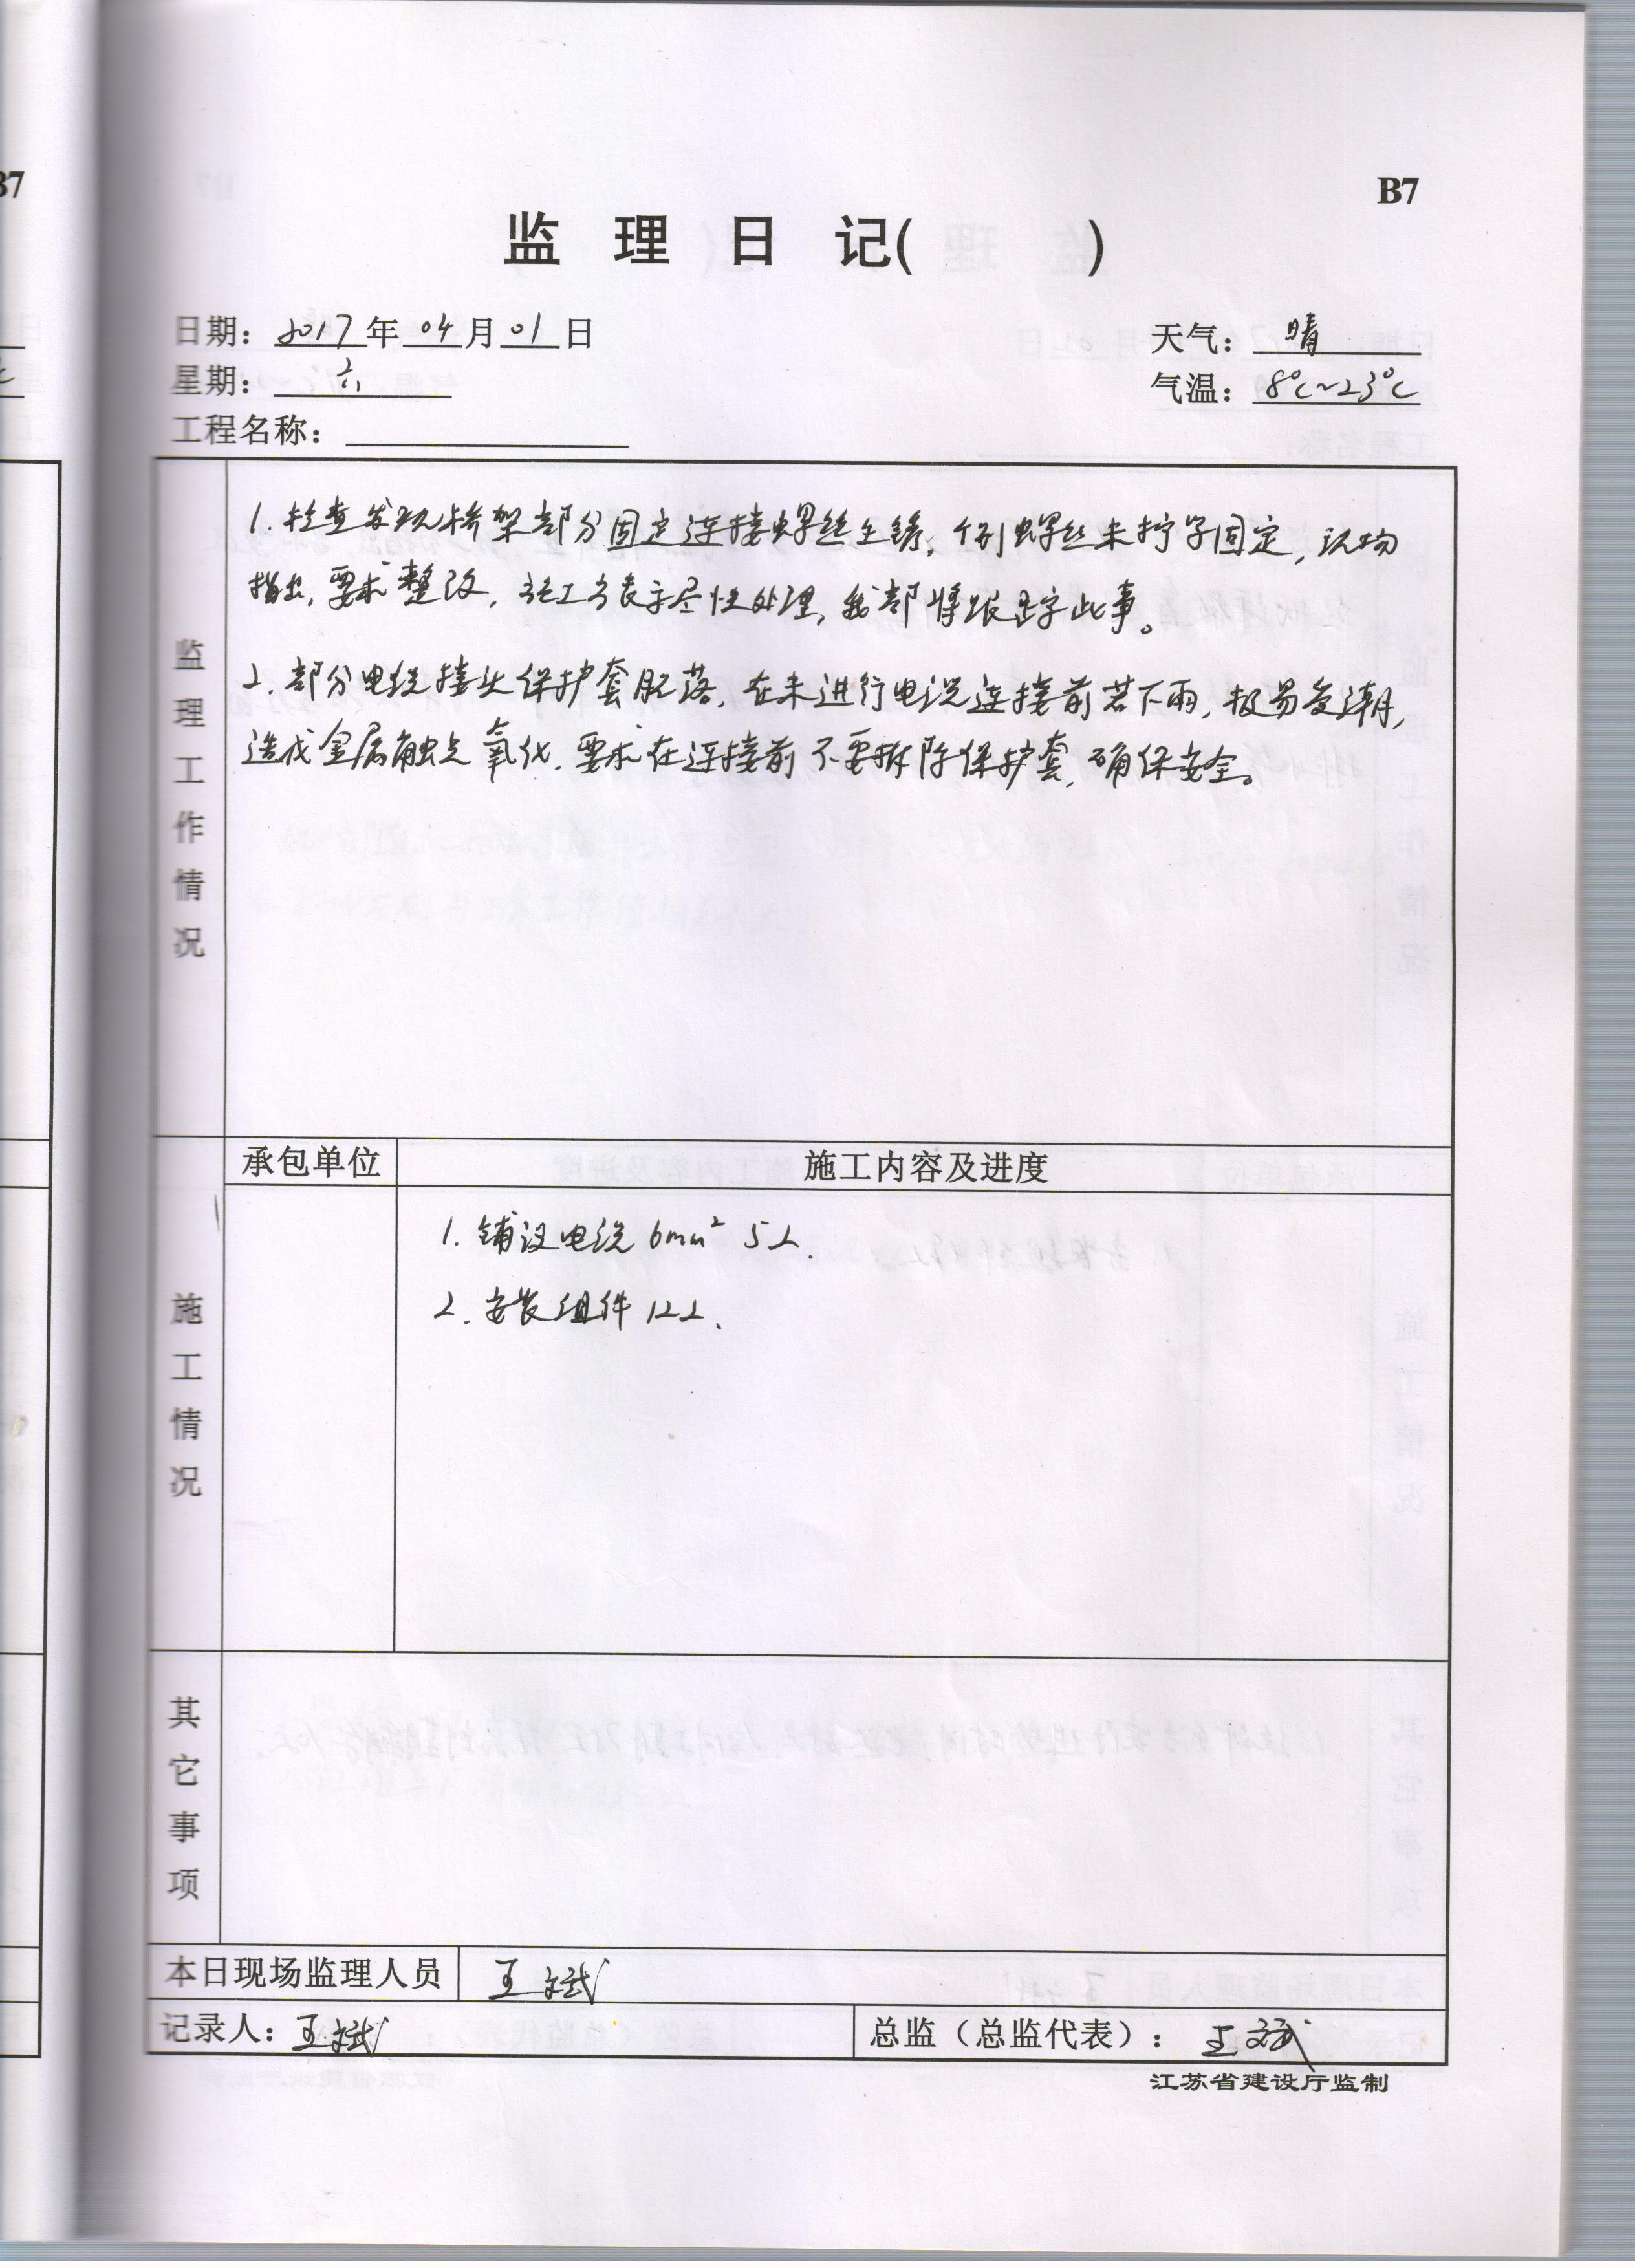 B7
监理日记( )
日期：2017年04月01日
天气：晴
星期：六
气温：8℃~23℃
工程名称：
监理工作情况
1. 检查发现桥架部分固定连接螺丝生锈，个别螺丝未拧牢固定，现场
指出，要求整改，施工方表示尽快处理，我部将跟踪此事。
2. 部分电缆接头保护套脱落，在未进行电缆连接前若下雨，极易受潮，
造成金属触点氧化，要求在连接前不要拆除保护套，确保安全。
承包单位
施工内容及进度
施工情况
1. 铺设电缆 6mm² 5人.
2. 安装组件 12人.
其它事项
本日现场监理人员 王斌
记录人：王斌
总监（总监代表）：王斌
江苏省建设厅监制